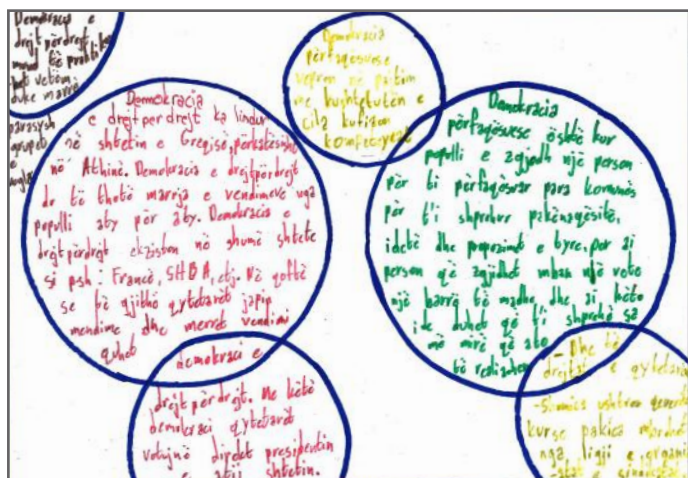 Demokracia e
drejtpërdrejt
mund të praktiko
het vetëm
duke marrë
parasysh
grupet
e
vogla
Demokracia
përfaqësuese
vepron në pajtim
me kushtetutën e
cila kufizon
kompetencat
Demokracia
e drejtperdrejt ka lindur
në shtetin e Greqisë, përkatësisht
në Athinë. Demokracia e drejtpërdrejt
do të thotë marrja e vendimeve nga
populli aty për aty. Demokracia e
drejtpërdrejt ekziston në shumë shtete
si psh: Francë, SHBA, etj. Në qoftë
se të gjithë qytetarët japin
mendime dhe merret vendimi
quhet
demokraci e
drejtpërdrejt. Me këtë
demokraci qytetarët
votujnë direkt presidentin
e atij shteti.
Demokracia
përfaqësuese është kur
populli e zgjedh një person
për ti përfaqësuar para komunës
për t'i shprehur pakënaqësitë,
idetë dhe propozimet e tyre, por ai
person që zgjidhet mban një vete
një barrë të madhe, dhe ai, këto
ide duhet që t'i shprehë sa
më mirë që ato
të realizohen
- Dhe të
drejtat e qytetarëve
- Shumica ushtron qeverinë
kurse pakica mbrohet
nga ligji e organi